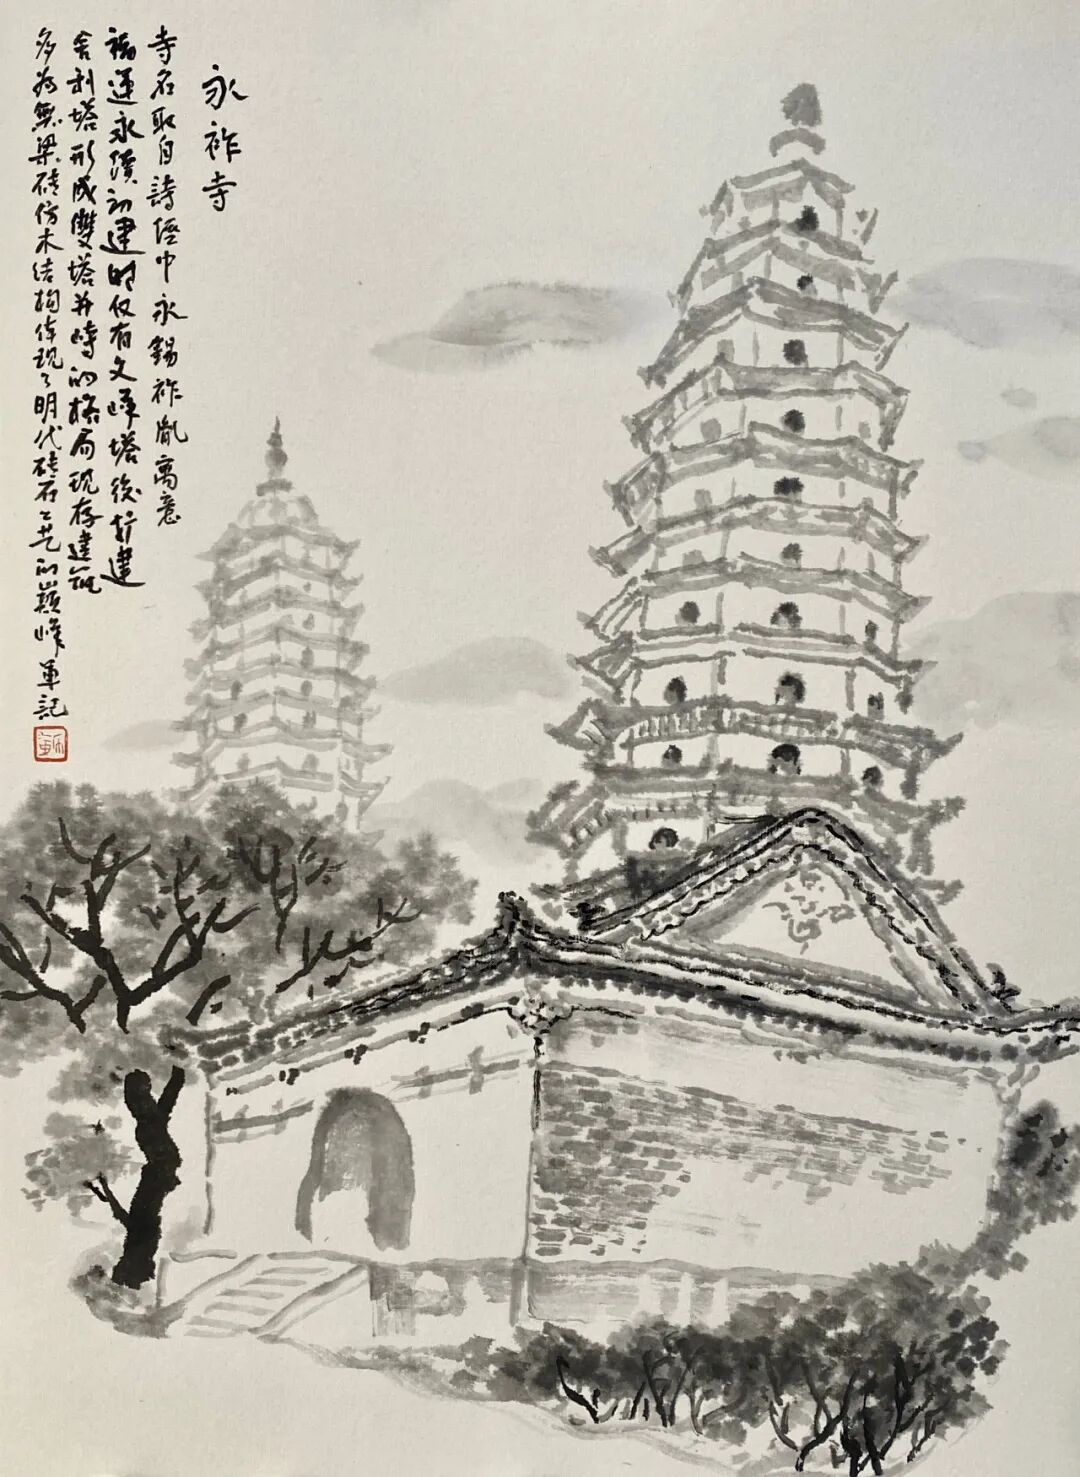 永祚寺
寺名取自詩經中永錫祚胤寓意
福運永續初建時仅有文峰塔後扩建
舍利塔形成雙塔并峙的格局現存建筑
多為無梁磚仿木结构体现了明代砖石工艺的巅峰 軍記